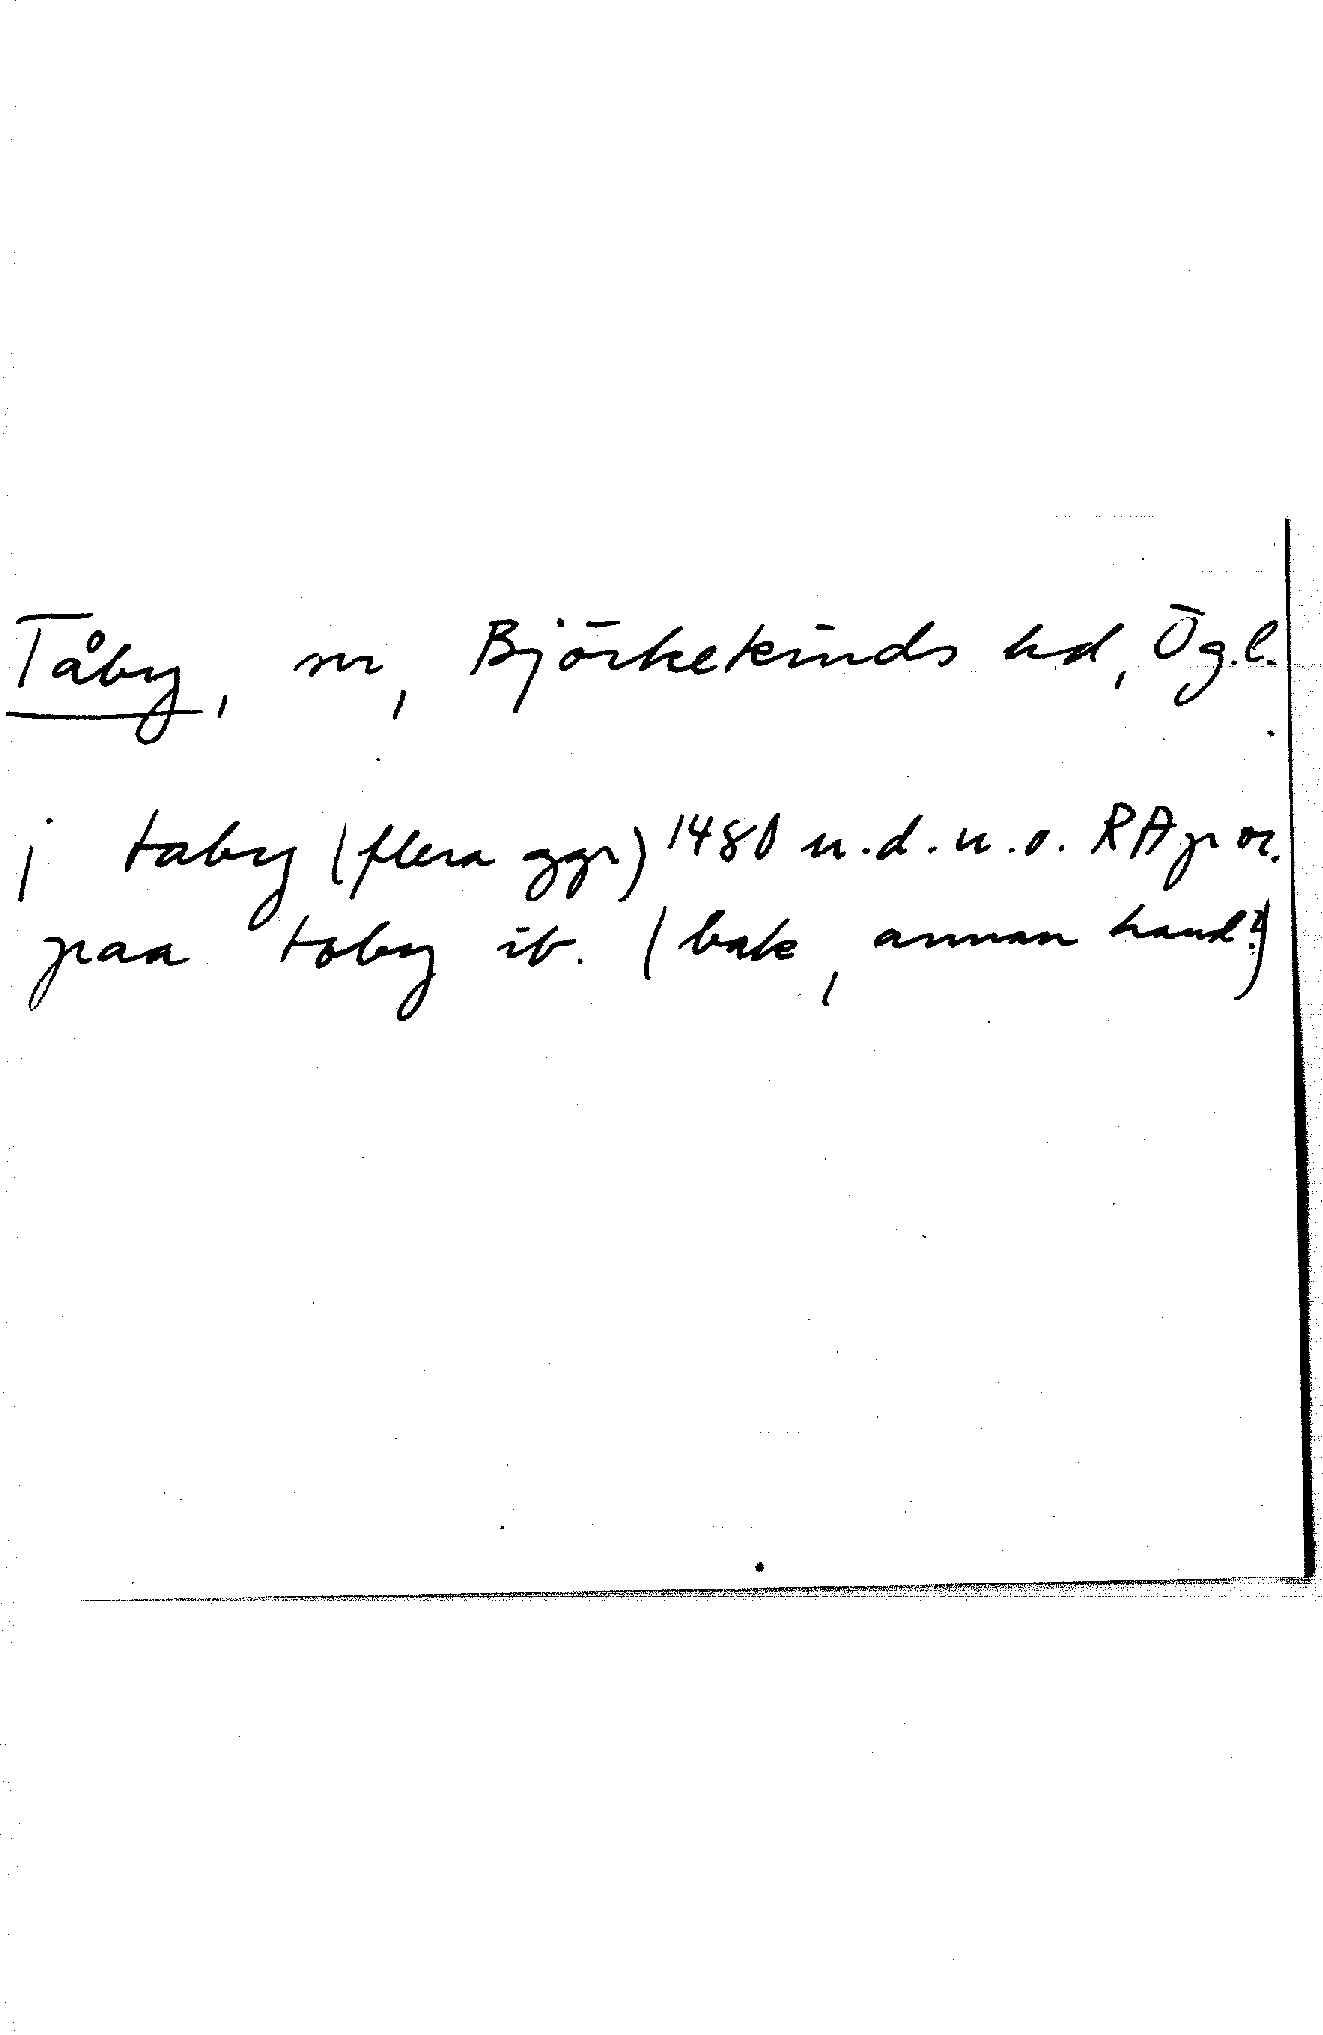 Tåby, sn, Björkekinds hd, Ög.l.
j taby (flera ggr) 1480 u.d.u.o. RAp or.
paa toby ib. (bak, annan hand?)